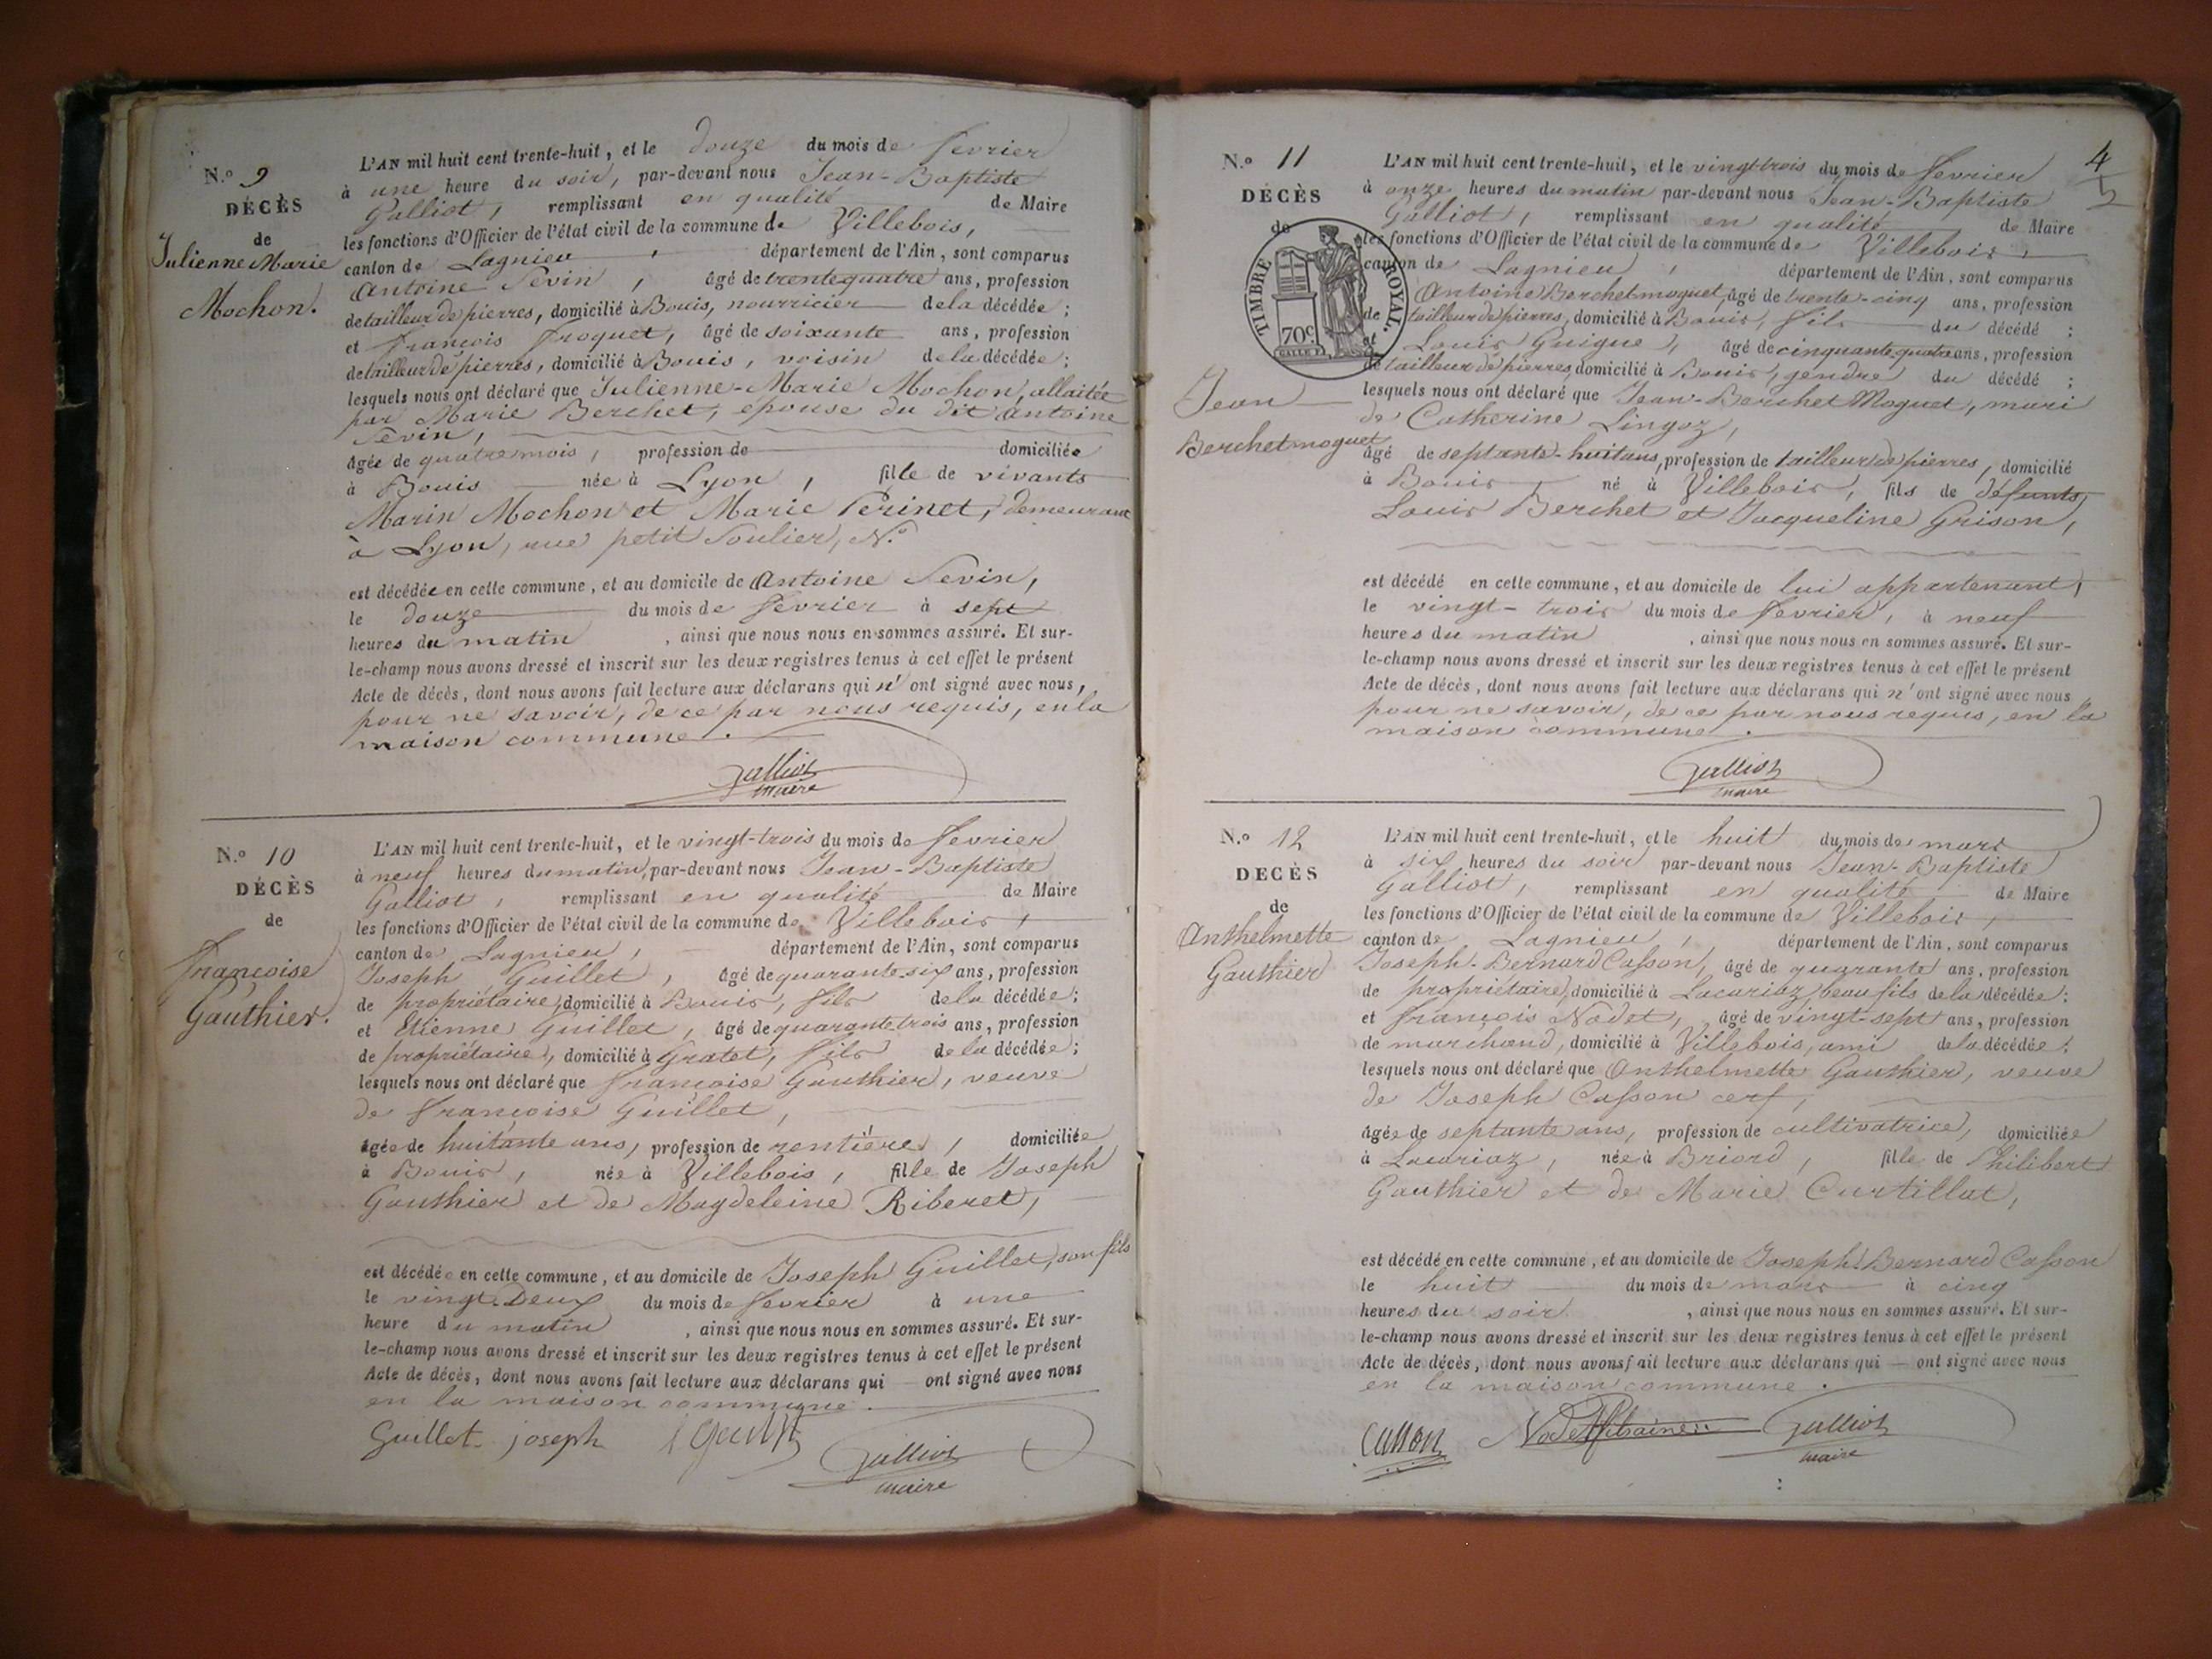 N.º 9
DÉCÈS
de
Julienne Marie
Mochon.
L'AN mil huit cent trente-huit, et le douze du mois de fevrier
à une heure du soir, par-devant nous Jean-Baptiste
Galliot, remplissant en qualité de Maire
les fonctions d'Officier de l'état civil de la commune de Villebois,
canton de Lagnieu, département de l'Ain, sont comparus
Antoine Sevin, âgé de trente quatre ans, profession
de tailleur de pierres, domicilié à Bouis, nourricier de la décédée;
et françois froquet, âgé de soixante ans, profession
de tailleur de pierres, domicilié à Bouis, voisin de la décédée;
lesquels nous ont déclaré que Julienne-Marie Mochon, allaitée
par Marie Berchet, épouse du dit Antoine
Sevin,
âgée de quatre mois, profession de domiciliée
à Bouis née à Lyon, fille de vivants
Marin Mochon et Marie Perinet, demeurant
à Lyon, rue petit Soulier, N.º
est décédée en cette commune, et au domicile de Antoine Sevin,
le douze du mois de fevrier à sept
heures du matin, ainsi que nous nous en sommes assuré. Et sur-
le-champ nous avons dressé et inscrit sur les deux registres tenus à cet effet le présent
Acte de décès, dont nous avons fait lecture aux déclarans qui n'ont signé avec nous,
pour ne savoir, de ce par nous requis, en la
maison commune.
Galliot
maire
N.º 10
DÉCÈS
de
françoise
Gauthier.
L'AN mil huit cent trente-huit, et le vingt-trois du mois de fevrier
à neuf heures du matin, par-devant nous Jean-Baptiste
Galliot, remplissant en qualité de Maire
les fonctions d'Officier de l'état civil de la commune de Villebois,
canton de Lagnieu, département de l'Ain, sont comparus
Joseph Guillet, âgé de quarante-six ans, profession
de propriétaire, domicilié à Bouis, fils de la décédée;
et Etienne Guillet, âgé de quarante trois ans, profession
de propriétaire, domicilié à Gratet, fils de la décédée;
lesquels nous ont déclaré que françoise Gauthier, veuve
de françoise Guillet,
âgée de huitante ans, profession de rentière, domiciliée
à Bouis, née à Villebois, fille de Joseph
Gauthier et de Magdeleine Riberet,
est décédée en cette commune, et au domicile de Joseph Guillet, son fils
le vingt-Deux du mois de fevrier à une
heure du matin, ainsi que nous nous en sommes assuré. Et sur-
le-champ nous avons dressé et inscrit sur les deux registres tenus à cet effet le présent
Acte de décès, dont nous avons fait lecture aux déclarans qui — ont signé avec nous
en la maison commune.
Guillet joseph
Galliot
maire
4
5
N.º 11
DÉCÈS
de
TIMBRE ROYAL.
70c.
Jean
Berchetmoguet
L'AN mil huit cent trente-huit, et le vingt-trois du mois de fevrier
à onze heures du matin par-devant nous Jean-Baptiste
Galliot, remplissant en qualité de Maire
les fonctions d'Officier de l'état civil de la commune de Villebois,
canton de Lagnieu, département de l'Ain, sont comparus
Antoine Berchetmoguet, âgé de trente-cinq ans, profession
de tailleur de pierres, domicilié à Bouis, fils du décédé;
et Louis Guigue, âgé de cinquante quatre ans, profession
de tailleur de pierres, domicilié à Bouis, gendre du décédé;
lesquels nous ont déclaré que Jean-Berchet Moguet, mari
de Catherine Lingoz,
âgé de septante-huit ans, profession de tailleur de pierres, domicilié
à Bouis, né à Villebois, fils de défunts,
Louis Berchet et Jacqueline Grison,
est décédé en cette commune, et au domicile de lui appartenant,
le vingt-trois du mois de fevrier, à neuf
heures du matin, ainsi que nous nous en sommes assuré. Et sur-
le-champ nous avons dressé et inscrit sur les deux registres tenus à cet effet le présent
Acte de décès, dont nous avons fait lecture aux déclarans qui n'ont signé avec nous
pour ne savoir, de ce par nous requis, en la
maison commune.
Galliot
maire
N.º 12
DECÈS
de
Anthelmette
Gauthier
L'AN mil huit cent trente-huit, et le huit du mois de mars
à six heures du soir par-devant nous Jean-Baptiste
Galliot, remplissant en qualité de Maire
les fonctions d'Officier de l'état civil de la commune de Villebois,
canton de Lagnieu, département de l'Ain, sont comparus
Joseph-Bernard Casson, âgé de quarante ans, profession
de propriétaire, domicilié à Lacarioz, beau fils de la décédée;
et françois Nodet, âgé de vingt-sept ans, profession
de marchand, domicilié à Villebois, ami de la décédée;
lesquels nous ont déclaré que Anthelmette Gauthier, veuve
de Joseph Casson cerf,
âgée de septante ans, profession de cultivatrice, domiciliée
à Lacarioz, née à Briord, fille de Philibert
Gauthier et de Marie Curtillat,
est décédé en cette commune, et au domicile de Joseph Bernard Casson
le huit du mois de mars à cinq
heures du soir, ainsi que nous nous en sommes assuré. Et sur-
le-champ nous avons dressé et inscrit sur les deux registres tenus à cet effet le présent
Acte de décès, dont nous avons fait lecture aux déclarans qui — ont signé avec nous
en la maison commune.
Casson
Galliot
maire